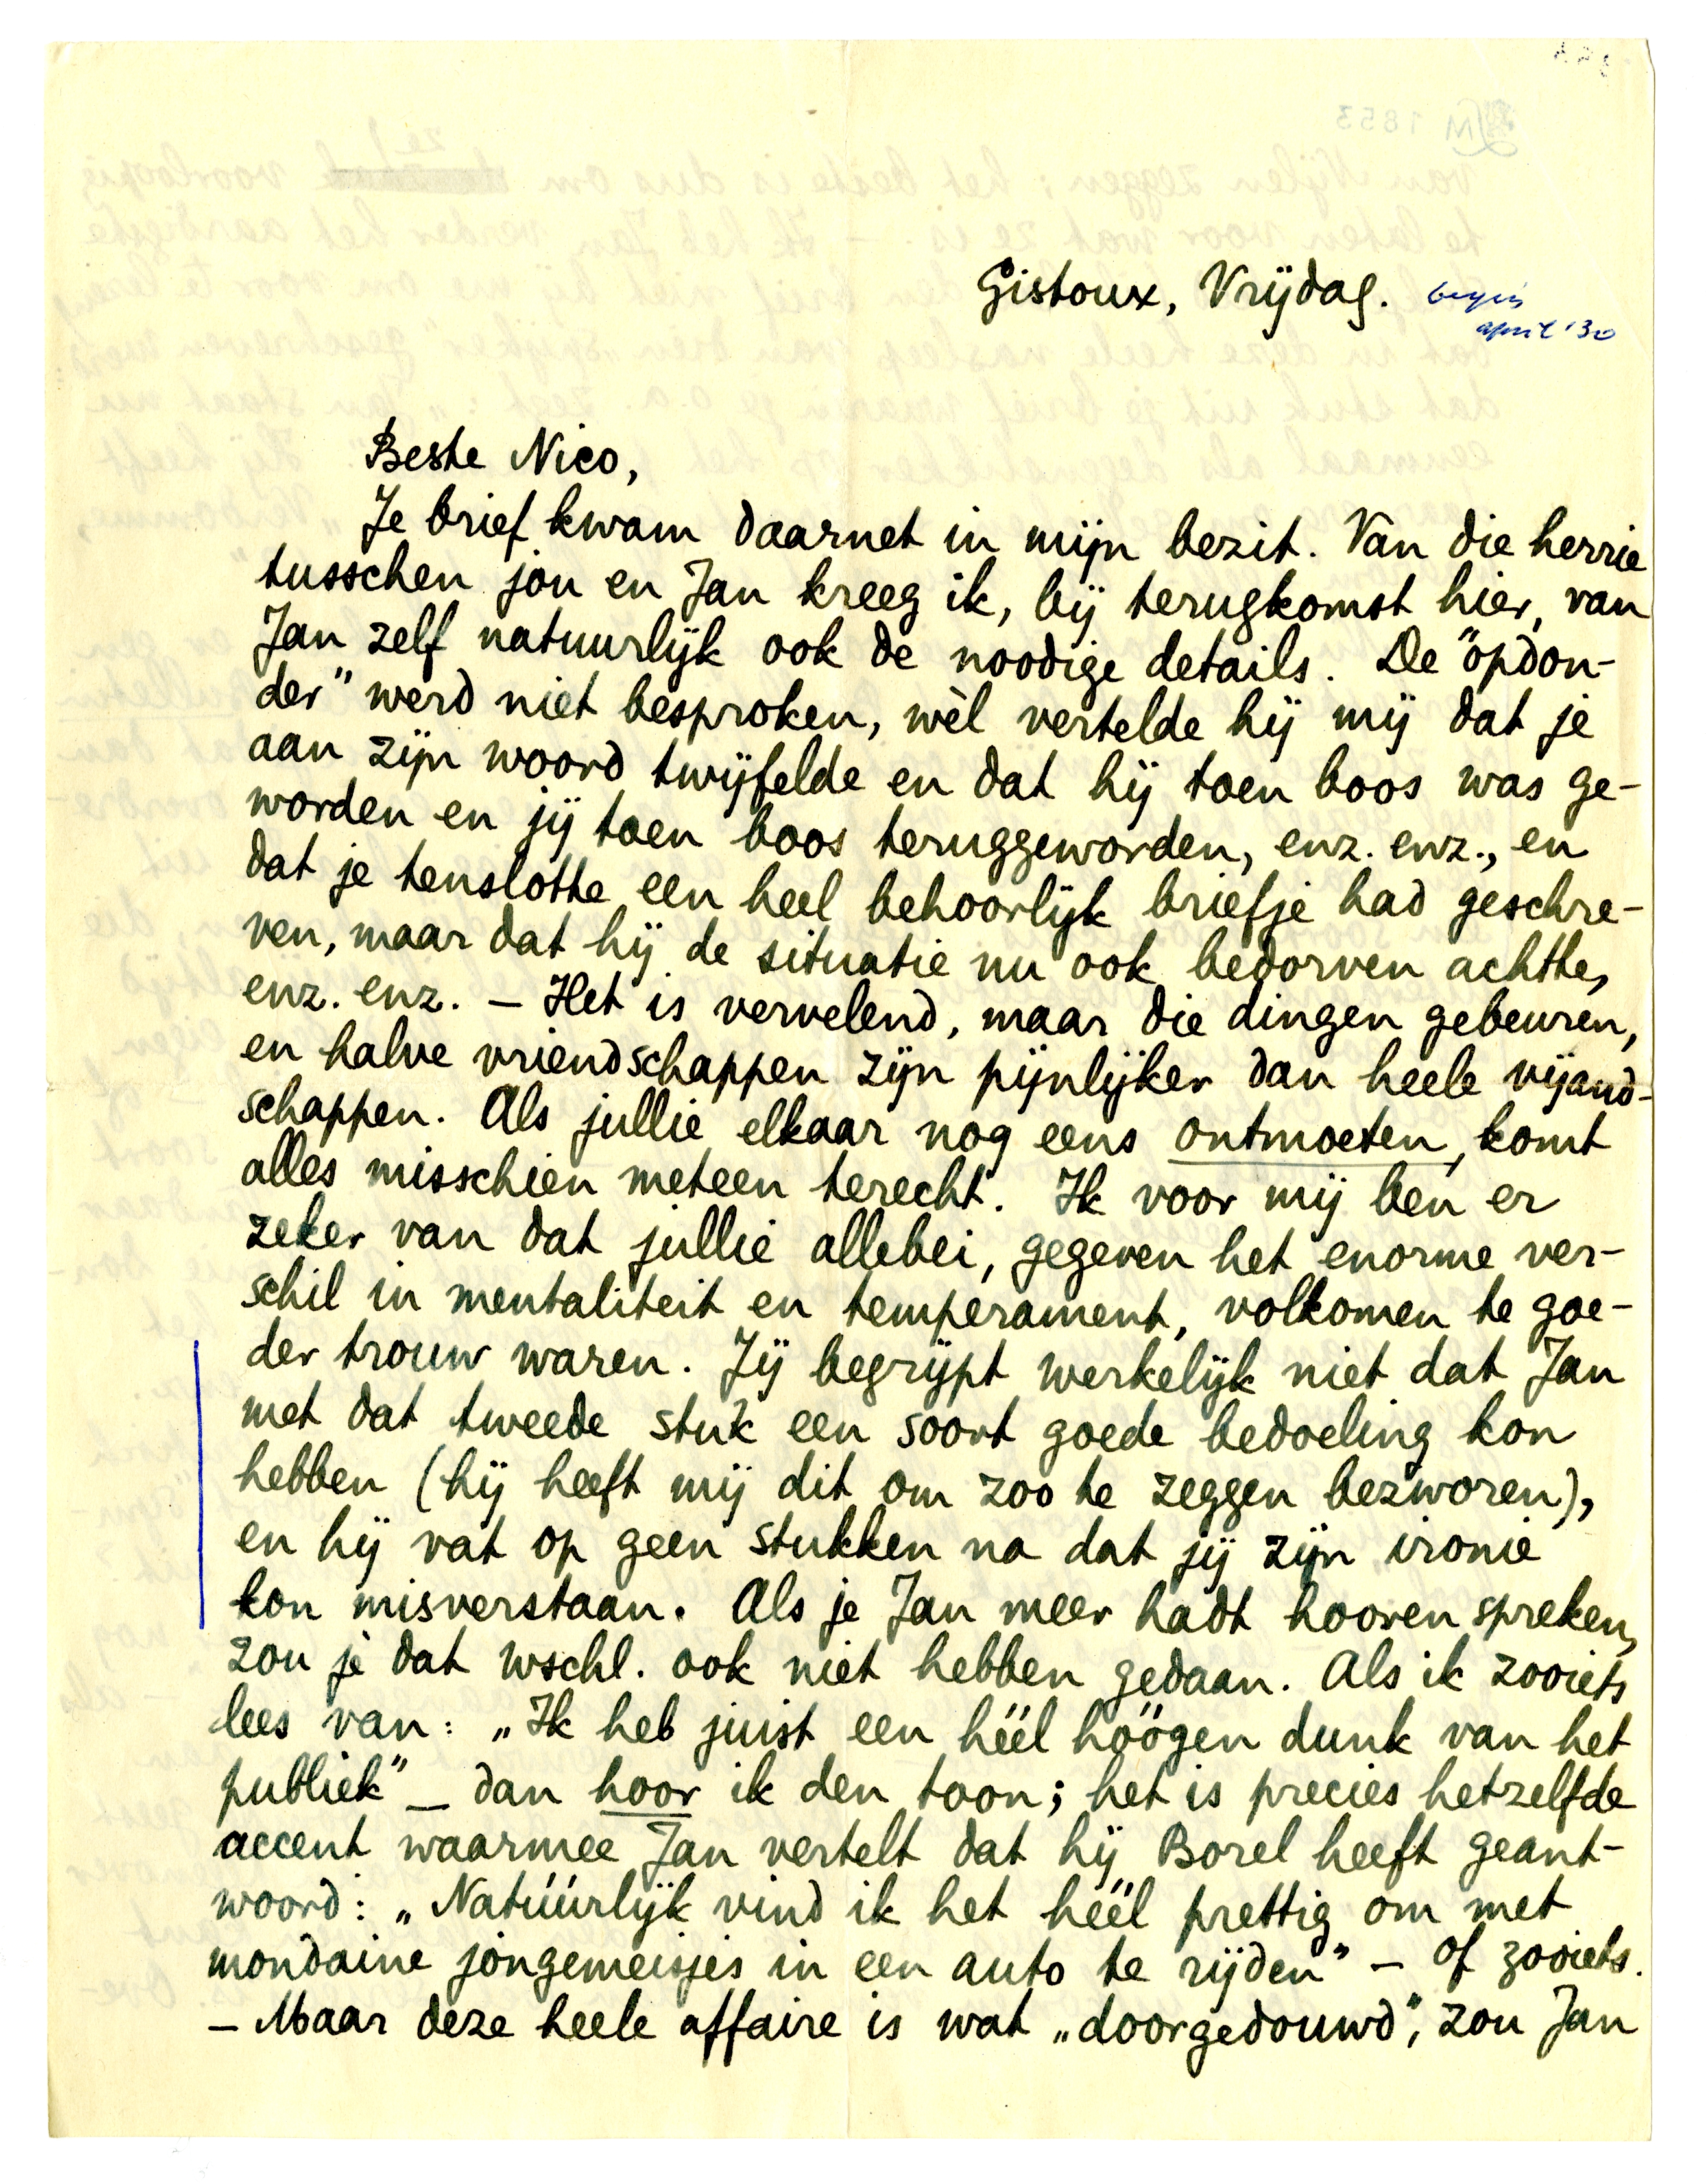 Gistoux, Vrijdag. begin
april '30
Beste Nico,
Je brief kwam daarnet in mijn bezit. Van die herrie
tusschen jou en Jan kreeg ik, bij terugkomst hier, van
Jan zelf natuurlijk ook de noodige details. De "opdon-
der" werd niet besproken, wèl vertelde hij mij dat je
aan zijn woord twijfelde en dat hij toen boos was ge-
worden en jij toen boos teruggeworden, enz. enz., en
dat je tenslotte een heel behoorlijk briefje had geschre-
ven, maar dat hij de situatie nu ook bedorven achtte,
enz. enz. – Het is vervelend, maar die dingen gebeuren,
en halve vriendschappen zijn pijnlijker dan heele vijand-
schappen. Als jullie elkaar nog eens ontmoeten, komt
alles misschien meteen terecht. Ik voor mij ben er
zeker van dat jullie allebei, gegeven het enorme ver-
schil in mentaliteit en temperament, volkomen te goe-
der trouw waren. Jij begrijpt werkelijk niet dat Jan
met dat tweede stuk een soort goede bedoeling kon
hebben (hij heeft mij dit om zoo te zeggen bezworen),
en hij vat op geen stukken na dat jij zijn ironie
kon misverstaan. Als je Jan meer hadt hooren spreken,
zou je dat wschl. ook niet hebben gedaan. Als ik zooiets
lees van: „Ik heb juist een héél hóógen dunk van het
publiek" – dan hoor ik den toon; het is precies hetzelfde
accent waarmee Jan vertelt dat hij Borel heeft geant-
woord: „Natúúrlijk vind ik het héél prettig om met
mondaine jongemeisjes in een auto te rijden" – of zooiets.
– Maar deze heele affaire is wat „doorgedouwd", zou Jan